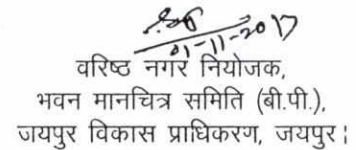 01-11-2017
वरिष्ठ नगर नियोजक,
भवन मानचित्र समिति (बी.पी.),
जयपुर विकास प्राधिकरण, जयपुर।